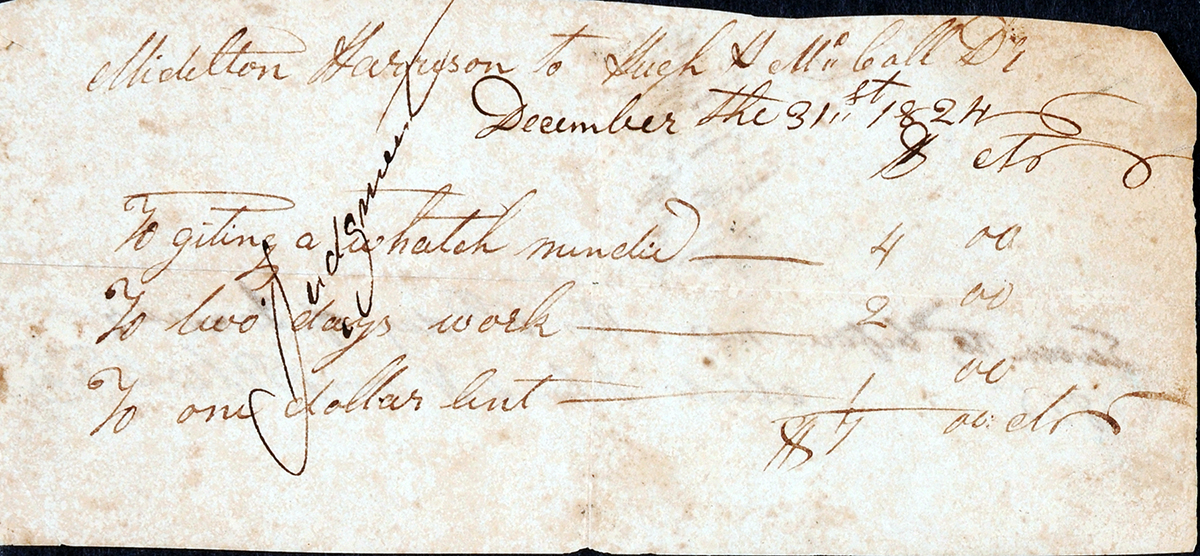 Midelton Harryson to Hugh H McCall Dr
December the 31st 1824
$ cts
To giting a whatch mendid 4 00
To two days work 2 00
To one dollar lent 1 00
$ 7 00 cts
Judgment